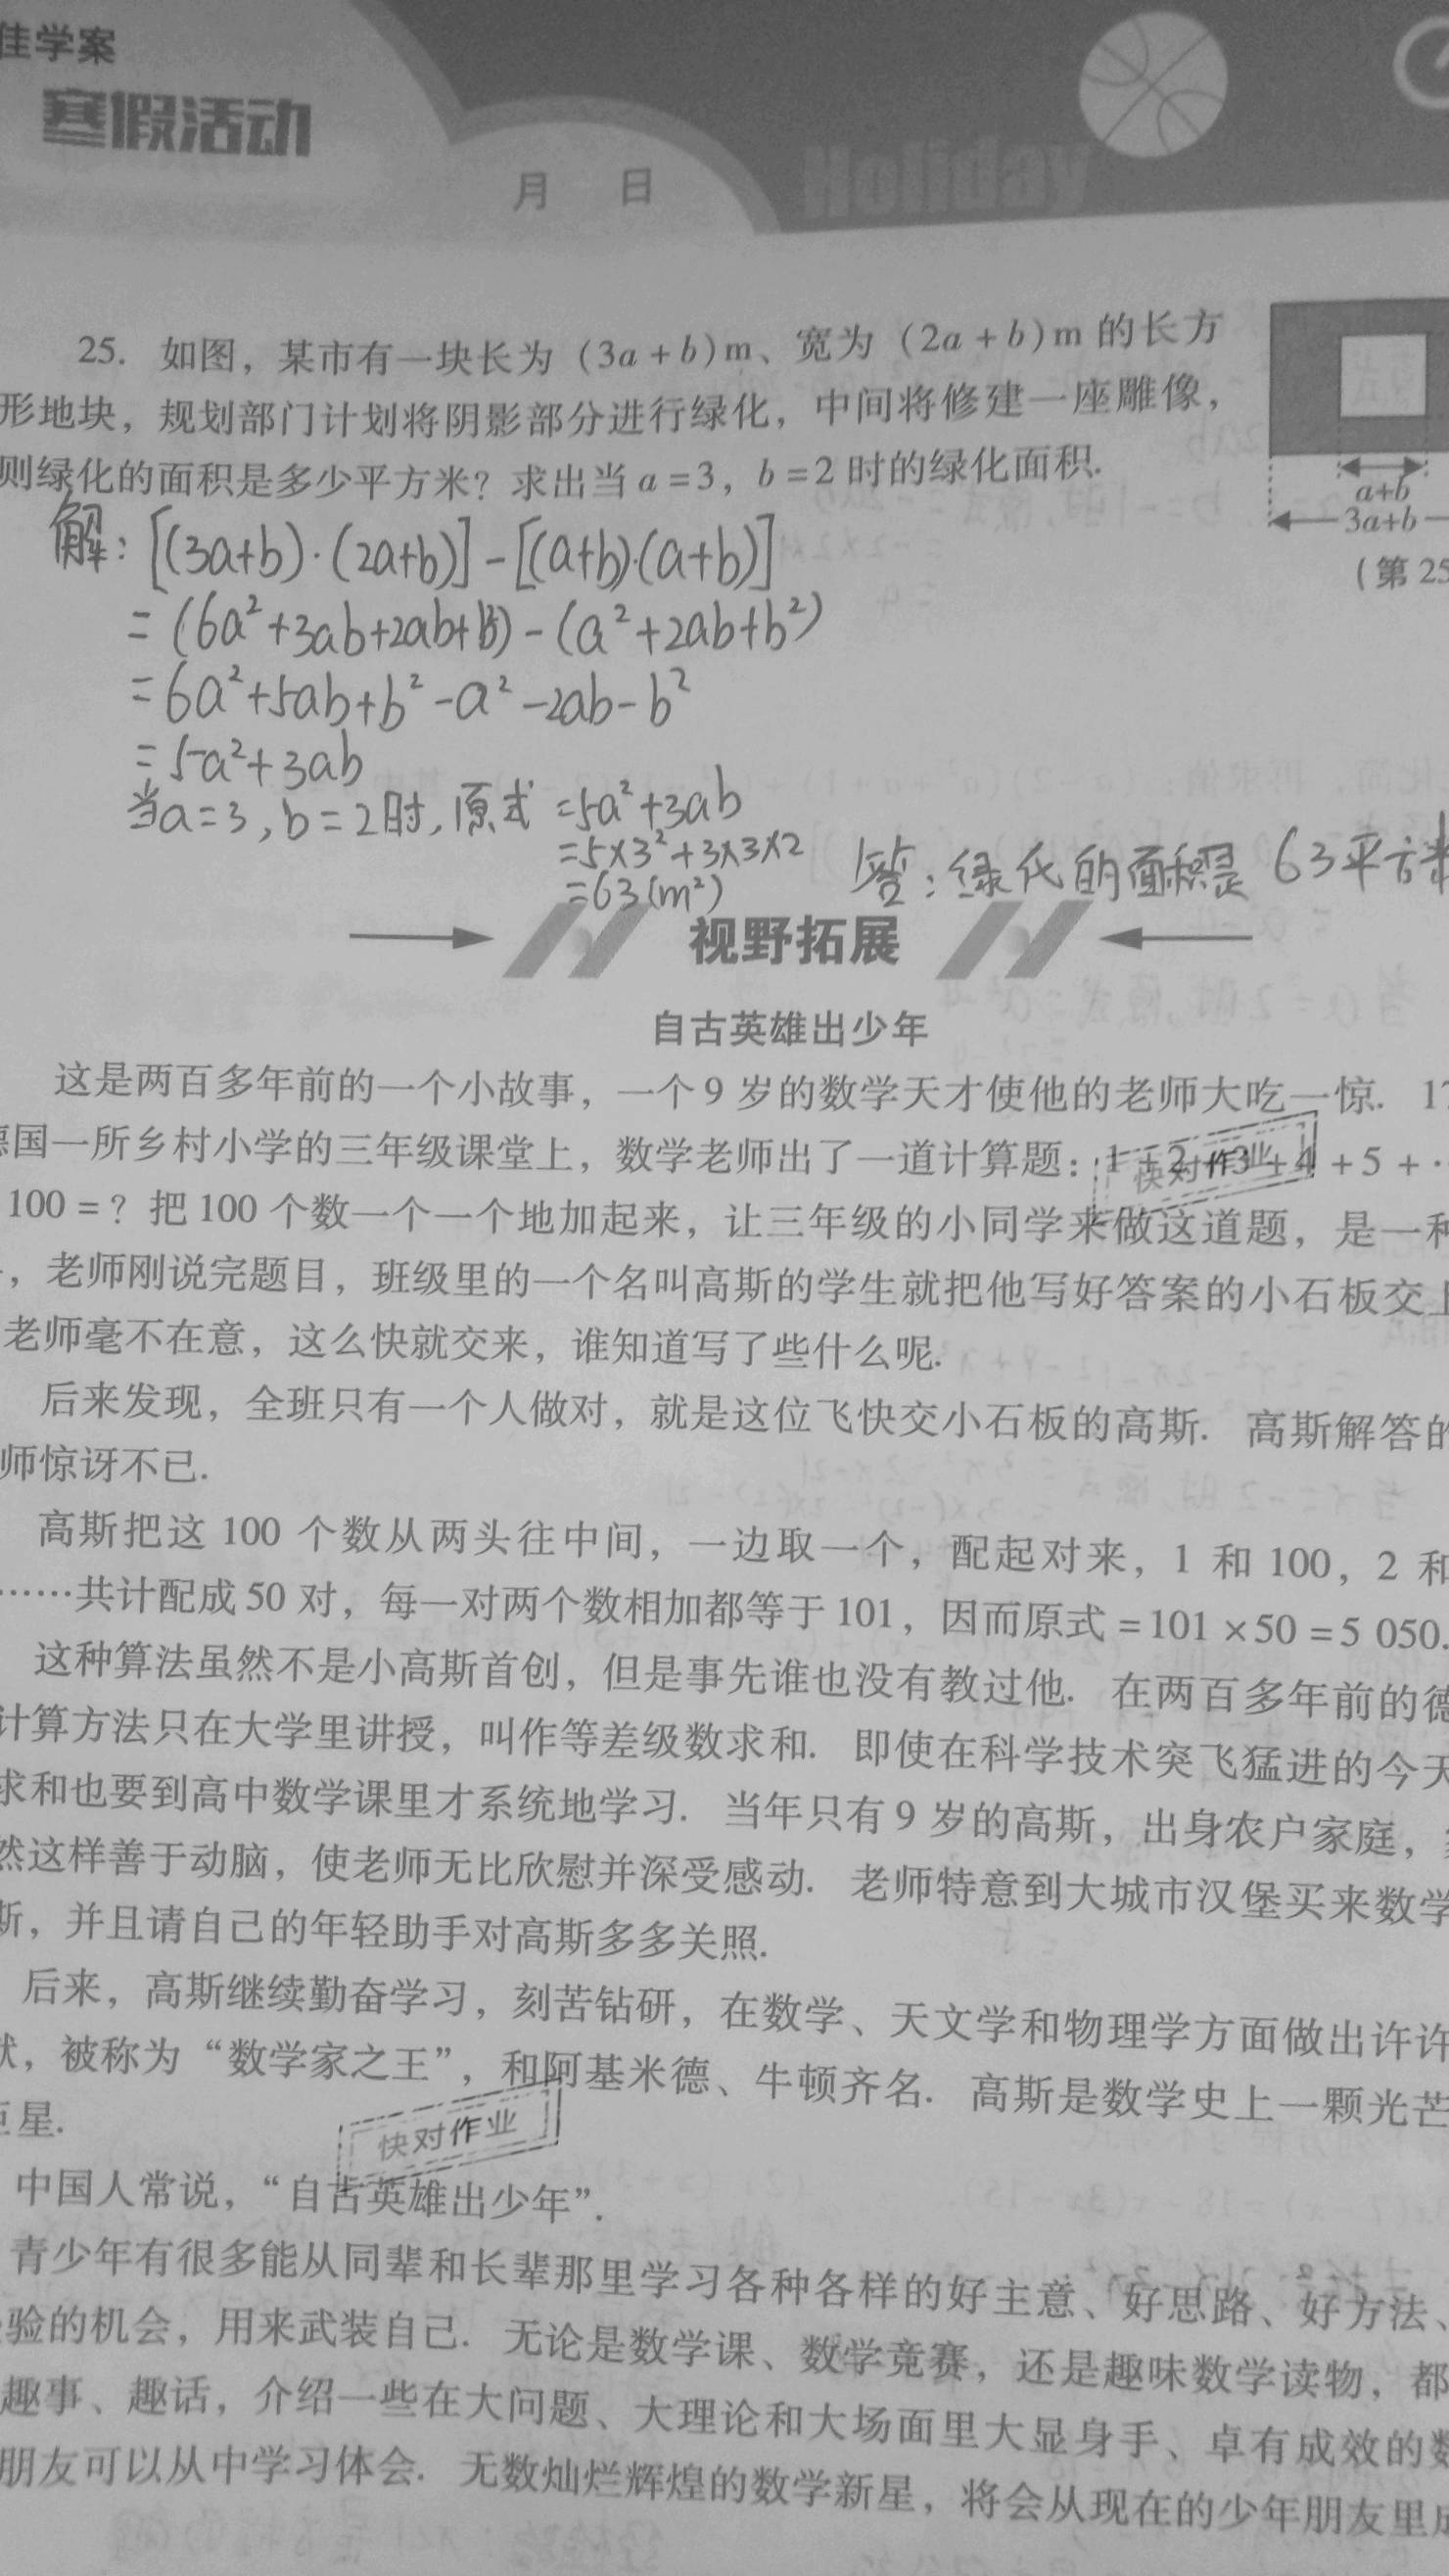 佳学案
寒假活动
月 日
Holiday
25. 如图，某市有一块长为（3a+b）m、宽为（2a+b）m的长方
形地块，规划部门计划将阴影部分进行绿化，中间将修建一座雕像，
则绿化的面积是多少平方米？求出当a=3，b=2时的绿化面积.
a+b
3a+b
（第25
解：[(3a+b)·(2a+b)]-[(a+b)·(a+b)]
=(6a²+3ab+2ab+b²)-(a²+2ab+b²)
=6a²+5ab+b²-a²-2ab-b²
=5a²+3ab
当a=3,b=2时,原式=5a²+3ab
=5×3²+3×3×2
=63(m²)
答：绿化的面积是63平方米
视野拓展
自古英雄出少年
这是两百多年前的一个小故事，一个9岁的数学天才使他的老师大吃一惊. 17
德国一所乡村小学的三年级课堂上，数学老师出了一道计算题：1+2+3+4+5+·
100=？把100个数一个一个地加起来，让三年级的小同学来做这道题，是一种
，老师刚说完题目，班级里的一个名叫高斯的学生就把他写好答案的小石板交上
老师毫不在意，这么快就交来，谁知道写了些什么呢.
后来发现，全班只有一个人做对，就是这位飞快交小石板的高斯. 高斯解答的
师惊讶不已.
高斯把这100个数从两头往中间，一边取一个，配起对来，1和100，2和
……共计配成50对，每一对两个数相加都等于101，因而原式=101×50=5 050.
这种算法虽然不是小高斯首创，但是事先谁也没有教过他. 在两百多年前的德
计算方法只在大学里讲授，叫作等差级数求和. 即使在科学技术突飞猛进的今天
求和也要到高中数学课里才系统地学习. 当年只有9岁的高斯，出身农户家庭，
然这样善于动脑，使老师无比欣慰并深受感动. 老师特意到大城市汉堡买来数学
斯，并且请自己的年轻助手对高斯多多关照.
后来，高斯继续勤奋学习，刻苦钻研，在数学、天文学和物理学方面做出许许
献，被称为“数学家之王”，和阿基米德、牛顿齐名. 高斯是数学史上一颗光芒
巨星.
中国人常说，“自古英雄出少年”.
青少年有很多能从同辈和长辈那里学习各种各样的好主意、好思路、好方法、
验的机会，用来武装自己. 无论是数学课、数学竞赛，还是趣味数学读物，都
趣事、趣话，介绍一些在大问题、大理论和大场面里大显身手、卓有成效的数
朋友可以从中学习体会. 无数灿烂辉煌的数学新星，将会从现在的少年朋友里成
快对作业
快对作业